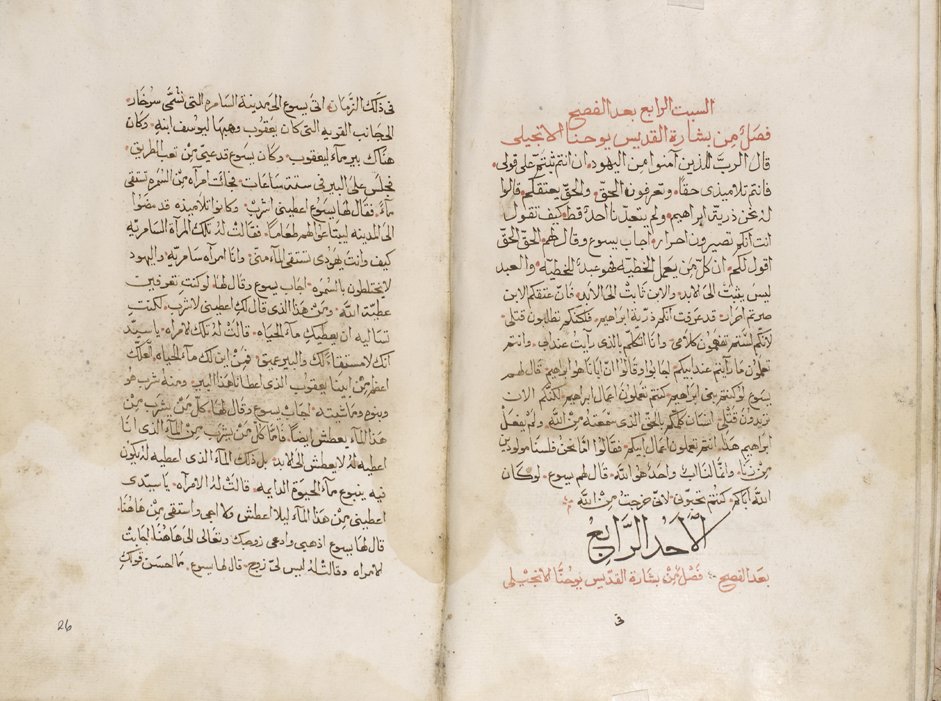 السبت الرابع بعد الفصح
فصل من بشارة القديس يوحنا الانجيلي
قال الرب للذين آمنوا من اليهود ان انتم ثبتم على قولى
فانتم تلاميذى حقا وتعرفون الحق والحق يعتقكم قالوا
له نحن ذرية ابراهيم ولم يتعبدنا احد قط كيف تقول
انت انكم تصيرون احرار اجاب يسوع وقال لهم الحق الحق
اقول لكم ان كل من يعمل الخطيه فهو عبد للخطيه والعبد
ليس يثبت الى الابد والابن ثابت الى الابد فان عتقكم الابن
صرتم احرار قد عرفت انكم ذرية ابراهيم فلكنكم تطلبون قتلى
لانكم لستم تفهمون كلامى وانا اتكلم بالذى رايت عند ابى وانتم
تعملون ما رايتم عند ابيكم اجابوا وقالوا ان ابانا هو ابراهيم قال لهم
يسوع لو كنتم بنى ابراهيم كنتم تعملون اعمال ابراهيم لكنكم الان
تريدون قتلى انسان كلمكم بالحق الذى سمعته من الله ولم يفعل
ابراهيم هذا انتم تعملون اعمال ابيكم فقالوا اما نحن فلسنا مولودين
من زنا وانما لنا اب واحد هو الله قال لهم يسوع لو كان
الله اباكم كنتم تحبونى لانى خرجت من الله
الاحد الرابع
بعد الفصح فصل من بشارة القديس يوحنا الانجيلي
فى
فى ذلك الزمان اتى يسوع الى مدينة السامره التى تسمى سوخار
الى جانب القريه التى كان يعقوب وهبها ليوسف ابنه وكان
هناك بير مآء ليعقوب وكان يسوع قد عيى من تعب الطريق
فجلس على البير فى ستة ساعات فجائت امراه من السمره تستقى
مآء فقال لها يسوع اعطينى اشرب وكانوا تلاميذه قد مضوا
الى المدينه ليبتاعوا لهم طعاما فقالت له تلك المرآة السامريه
كيف وانت يهودى تستقى المآء منى وانا امراه سامريه واليهود
لا يختلطون بالسمره اجاب يسوع وقال لها لو كنت تعرفين
عطية الله ومن هذا الذى قال لك اعطينى لاشرب لكنت
تساليه ان يعطيك مآء الحياه قالت له تلك الامراه يا سيد
انك لا مستقا لك والبير عميق فمن اين لك مآء الحياه العلك
اعظم من ابينا يعقوب الذى اعطانا هذا البير ومنه شرب هو
وبنوه وماشيته اجاب يسوع وقال لها كل من يشرب من
هذا المآء يعطش ايضا فاما كل من يشرب من المآء الذى انا
اعطيه له لا يعطش الى الابد بل ذلك المآء الذى اعطيه له يكون
فيه ينبوع مآء الحيوة الدايمه قالت له الامراه يا سيدى
اعطينى من هذا المآء ليلا اعطش ولا اجى واستقى من هاهنا
قال لها يسوع اذهبى وادعى زوجك وتعالى الى هاهنا اجابت
الامراه وقالت له ليس لى زوج قال لها يسوع ما احسن قولك
26